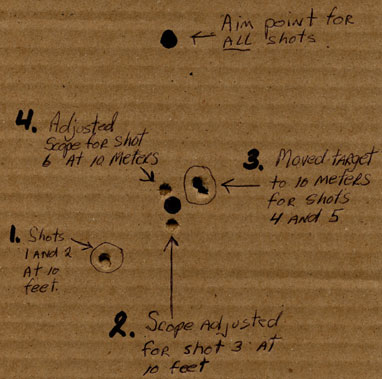 Aim point for
ALL shots
4. Adjusted
scope for shot
6 At 10 Meters
3. Moved target
to 10 meters
for shots
4 and 5
1. Shots
1 and 2
At 10
feet.
2. Scope adjusted
for shot 3 at
10 feet